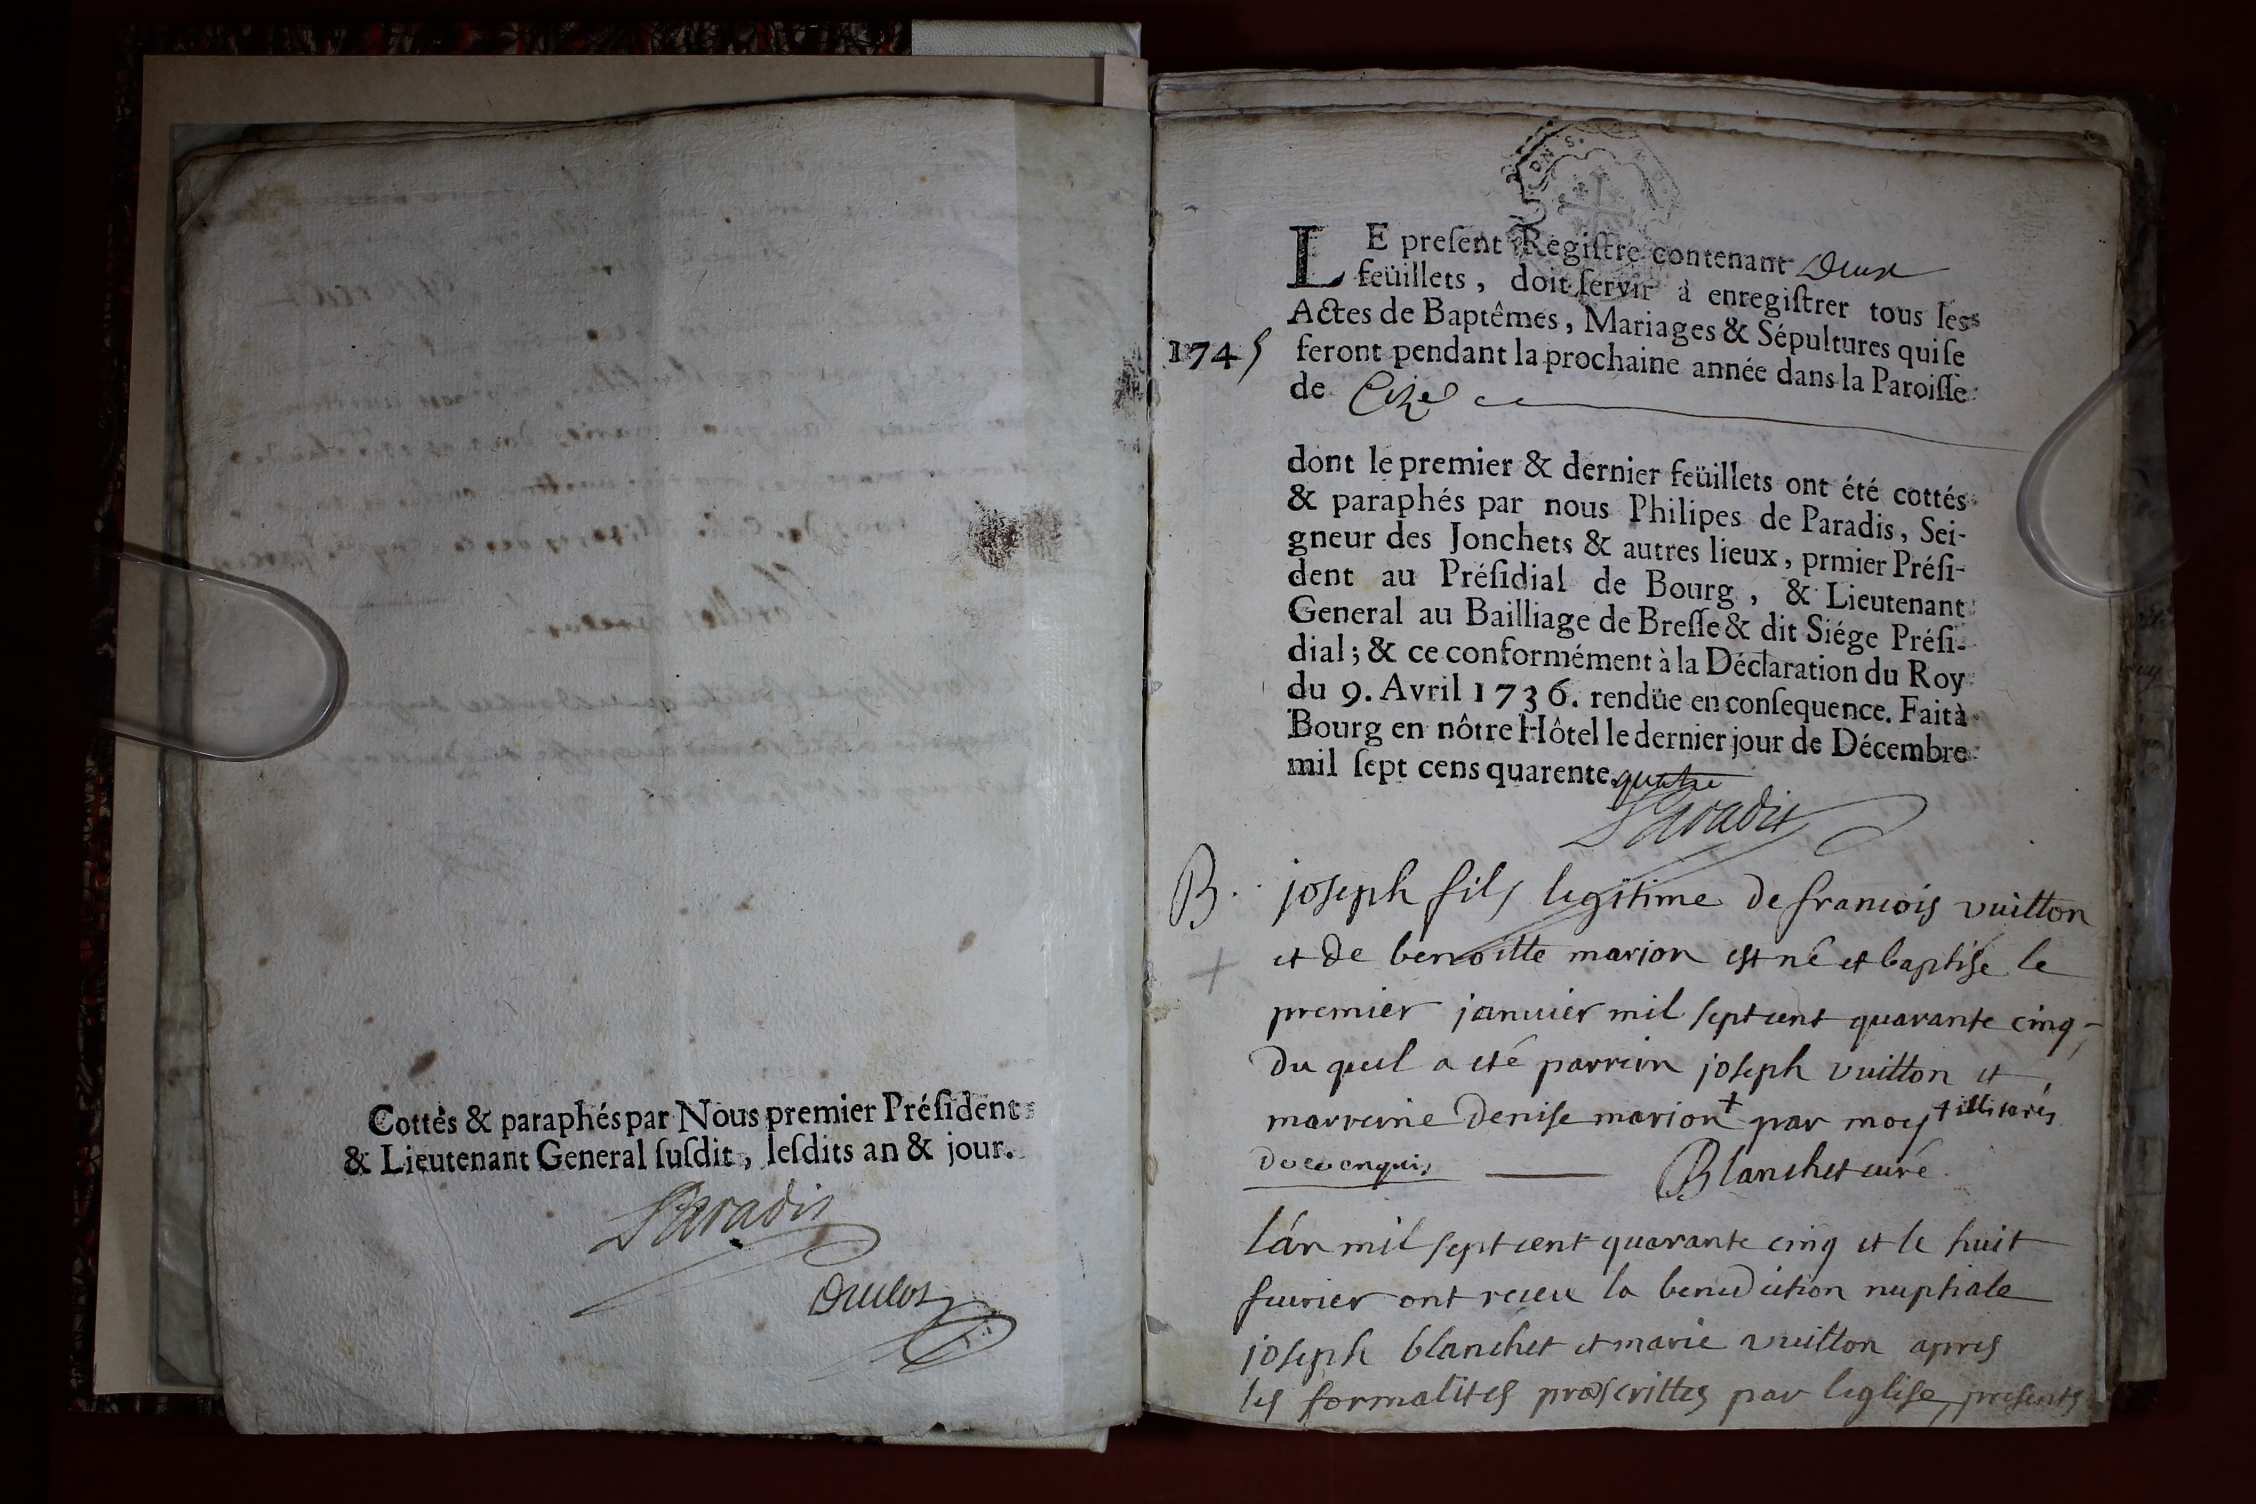 Cottés & paraphés par Nous premier Préſident
& Lieutenant General ſuſdit, leſdits an & jour.
Paradis
Duclos
LE preſent Regiſtre contenant Deux
feüillets, doit ſervir à enregiſtrer tous les
Actes de Baptêmes, Mariages & Sépultures qui ſe
1745
feront pendant la prochaine année dans la Paroiſſe
de
dont le premier & dernier feüillets ont été cottés
& paraphés par nous Philipes de Paradis, Sei-
gneur des Jonchets & autres lieux, prmier Préſi-
dent au Préſidial de Bourg, & Lieutenant
General au Bailliage de Breſſe & dit Siége Préſi-
dial; & ce conformément à la Déclaration du Roy
du 9. Avril 1736. rendüe en conſequence. Fait à
Bourg en nôtre Hôtel le dernier jour de Décembre
mil ſept cens quarente quatre
Paradis
B. joseph fils legitime de francois vuitton
+ et de benoitte marion est né et baptise le
premier januier mil sept cent quarante cinq
du quel a eté parrein joseph vuitton et
marreine denise marion + par moy + illitarés
de ce enquis Blanchet curé
l'an mil sept cent quarante cinq et le huit
feurier ont receu la benediction nuptiale
joseph blanchet et marie vuitton apres
les formalites præscrittes par leglise, presents